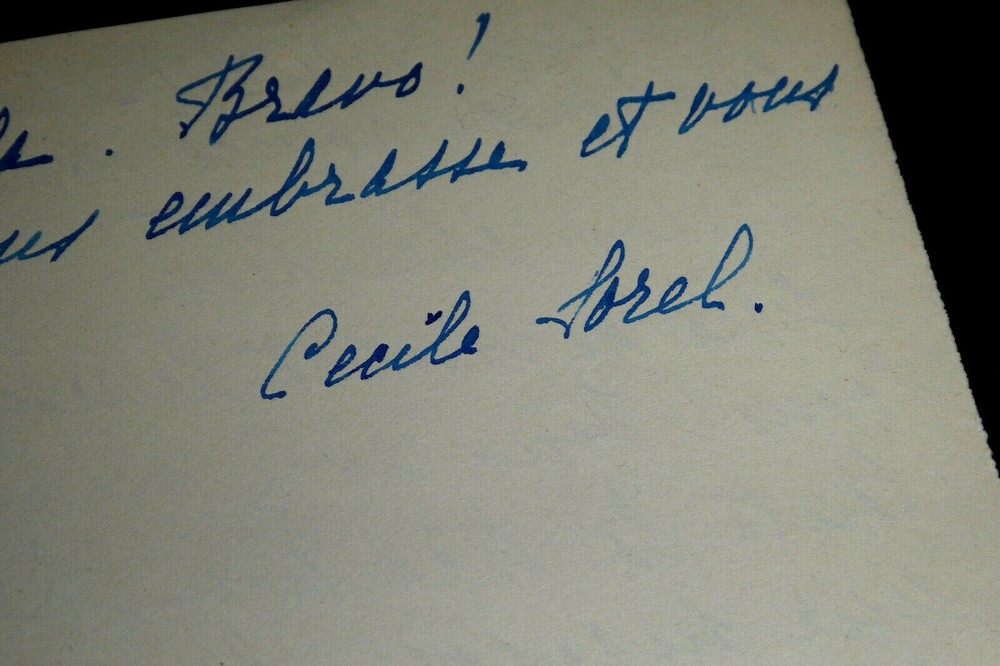 . Bravo!
embrasse et vous
Cecile Sorel.